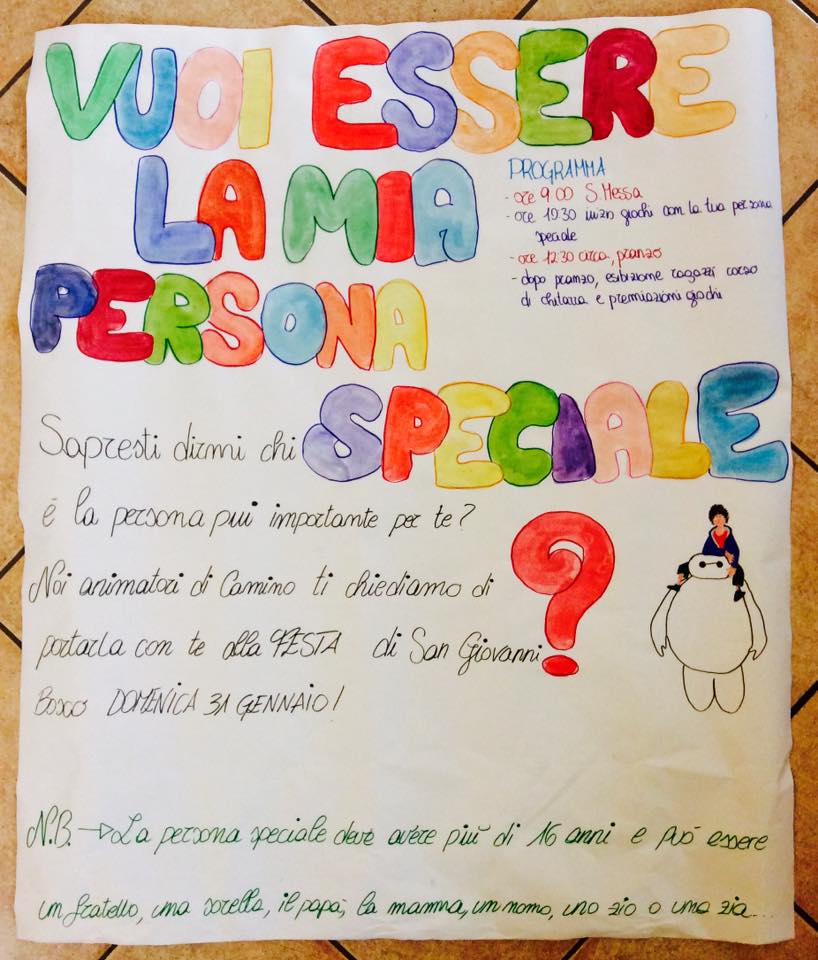 VUOI ESSERE
LA MIA
PERSONA
SPECIALE
?
PROGRAMMA
- ore 9:00 S. Messa
- ore 10:30 inizio giochi con la tua persona
speciale
- ore 12:30 circa, pranzo
- dopo pranzo, esibizione ragazzi corso
di chitarra e premiazioni giochi
Sapresti dirmi chi
é la persona pui importante per te?
Noi animatori di Camino ti chiediamo di
portarla con te alla FESTA di San Giovanni
Bosco DOMENICA 31 GENNAIO!
N.B. → La persona speciale deve avere più di 16 anni e può essere
un fratello, una sorella, il papà, la mamma, un nonno, uno zio o una zia...